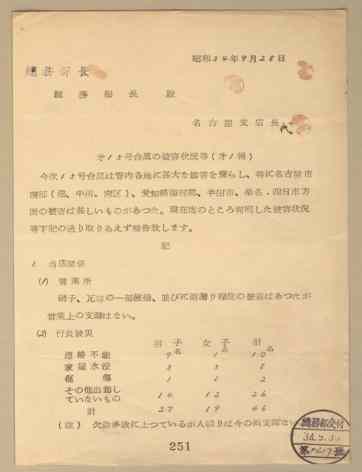 昭和34年9月28日
總務部長
総務部長殿
名古屋支店長
才15号台風の被害状況等(才1報)
今次15号台風は管内各地に甚大な被害を齎らし、特に名古屋市
南部(港、中川、南区)、愛知県海部郡、半田市、桑名、四日市方
面の被害は甚しいものがあつた。現在迄のところ判明した被害状況
等下記の通り取りあえず報告致します。
記
1. 当店関係
(1) 営業所
硝子、瓦等の一部破損、並びに雨漏り程度の被害はあつたが
営業上の支障はない。
(2) 行員被災
男子 女子 計
連絡不能 9名 1名 10名
家屋水浸
1 1 2
その他出勤し
ていないもの 16 12 26
計 27 19 46
(註) 欠勤多数に上つているが人繰りは今の所支障ない
總務部受付
251